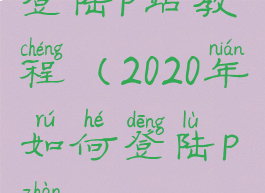 登陆P站教
chéng nián
程（2020年
rú hé dēng lù
如何登陆P
zhàn